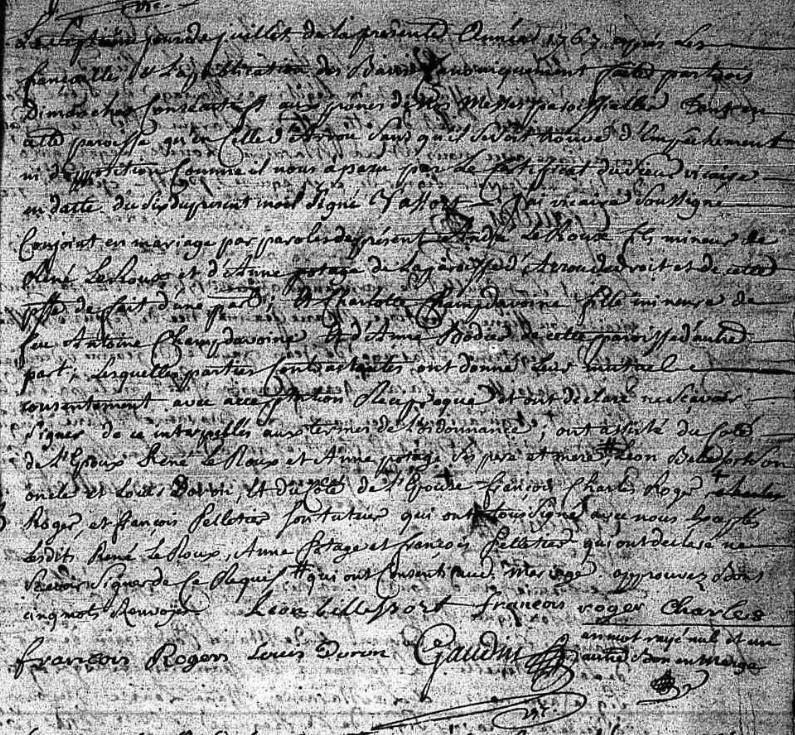 Le septieme jour de juillet de la presente Année 1767 apprés Les
fiançailles & La publication des Bans Canoniquement faite par trois
Dimanches Consecutifs aux prônes de Nos Messes paroissialles Tant en
cette paroisse qu'en Celle d'Arrou Sans qu'il se soit trouvé d'Empechement
ni d'opposition Comme il nous a paru par Le Certificat du sieur vicaire
en datte du six du present mois Signé J'ai vicaire Soussigné
Conjoint en mariage par paroles de présent André Le Roux fils mineur de
René Le Roux et d'Anne potage de La paroisse d'Arrou de droit et de cette
psse de fait d'une part; Et Charlotte Champdavoine fille mineure de
feu Antoine Champdavoine Et d'Anne Bodier de cette paroisse d'autre
part; Lesquelles parties Contractantes ont donné Leur mutuel
consentement avec acceptation Réciproque et ont declaré ne Scavoir
Signer de ce interpellés aux termes de L'ordonnance; ont assisté du Coté
de L'Epoux René Le Roux et Anne potage Ses pere et mere # Leon Bellessort Son
oncle et Louis Doron, Et du Côté de L'Epouse françois Charles Roger
Roger, et françois Pelletier Son tuteur qui ont Sous Signé avec nous Exceptés
Lesdits René Le Roux, Anne Potage et françois Pelletier qui ont declaré ne
Scavoir Signer de Ce Requis # qui ont Consenti audit Mariage approuvez Bons
cinq mots Renvoyés Leon bellessort françois roger Charles
françois Rogers Louis Doron Gaudin
un mot rayé nul et un
autre Bon en Marge